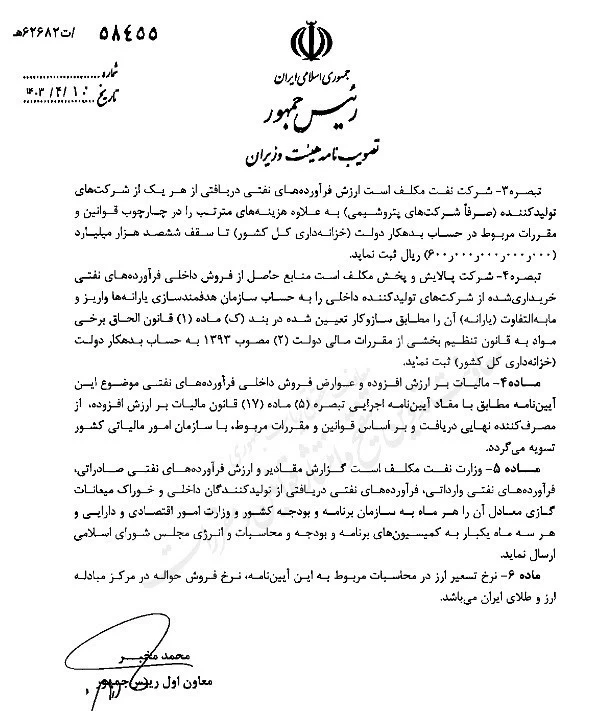 ۵۸۴۵۵ /ت۶۲۶۸۲هـ
جمهوری اسلامی ایران
رئیس جمهور
شماره
تاریخ ۱۴۰۳/۴/۱۰
تصویب نامه هیئت وزیران
تبصره۳- شرکت نفت مکلف است ارزش فرآورده‌های نفتی دریافتی از هر یک از شرکت‌های
تولیدکننده (صرفاً شرکت‌های پتروشیمی) به علاوه هزینه‌های مترتب را در چارچوب قوانین و
مقررات مربوط در حساب بدهکار دولت (خزانه‌داری کل کشور) تا سقف ششصد هزار میلیارد
(۶۰۰٫۰۰۰٫۰۰۰٫۰۰۰٫۰۰۰) ریال ثبت نماید.
تبصره۴- شرکت پالایش و پخش مکلف است منابع حاصل از فروش داخلی فرآورده‌های نفتی
خریداری‌شده از شرکت‌های تولیدکننده داخلی را به حساب سازمان هدفمندسازی یارانه‌ها واریز و
مابه‌التفاوت (یارانه) آن را مطابق سازوکار تعیین شده در بند (ک) ماده (۱) قانون الحاق برخی
مواد به قانون تنظیم بخشی از مقررات مالی دولت (۲) مصوب ۱۳۹۳ به حساب بدهکار دولت
(خزانه‌داری کل کشور) ثبت نماید.
ماده۴- مالیات بر ارزش افزوده و عوارض فروش داخلی فرآورده‌های نفتی موضوع این
آیین‌نامه مطابق با مفاد آیین‌نامه اجرایی تبصره (۵) ماده (۱۷) قانون مالیات بر ارزش افزوده، از
مصرف‌کننده نهایی دریافت و بر اساس قوانین و مقررات مربوط، با سازمان امور مالیاتی کشور
تسویه می‌گردد.
ماده ۵- وزارت نفت مکلف است گزارش مقادیر و ارزش فرآورده‌های نفتی صادراتی،
فرآورده‌های نفتی وارداتی، فرآورده‌های نفتی دریافتی از تولیدکنندگان داخلی و خوراک میعانات
گازی معادل آن را هر ماه به سازمان برنامه و بودجه کشور و وزارت امور اقتصادی و دارایی و
هر سه ماه یکبار به کمیسیون‌های برنامه و بودجه و محاسبات و انرژی مجلس شورای اسلامی
ارسال نماید.
ماده ۶- نرخ تسعیر ارز در محاسبات مربوط به این آیین‌نامه، نرخ فروش حواله در مرکز مبادله
ارز و طلای ایران می‌باشد.
محمد مخبر
معاون اول رییس‌جمهور